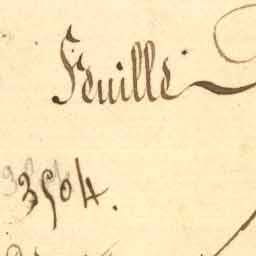 Feuille
3504.